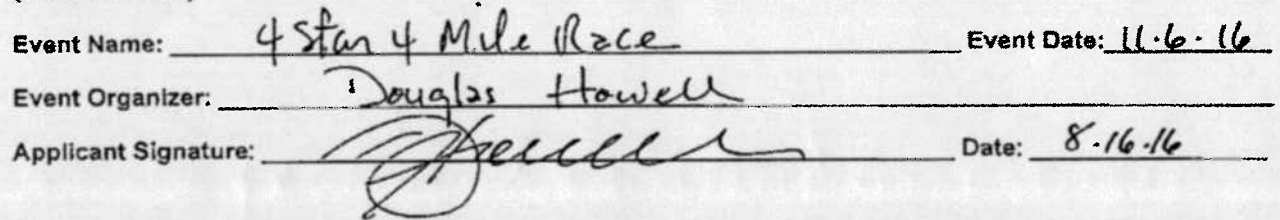 Event Name: 4 Star 4 Mile Race Event Date: 11.6.16
Event Organizer: Douglas Howell
Applicant Signature: Date: 8.16.16